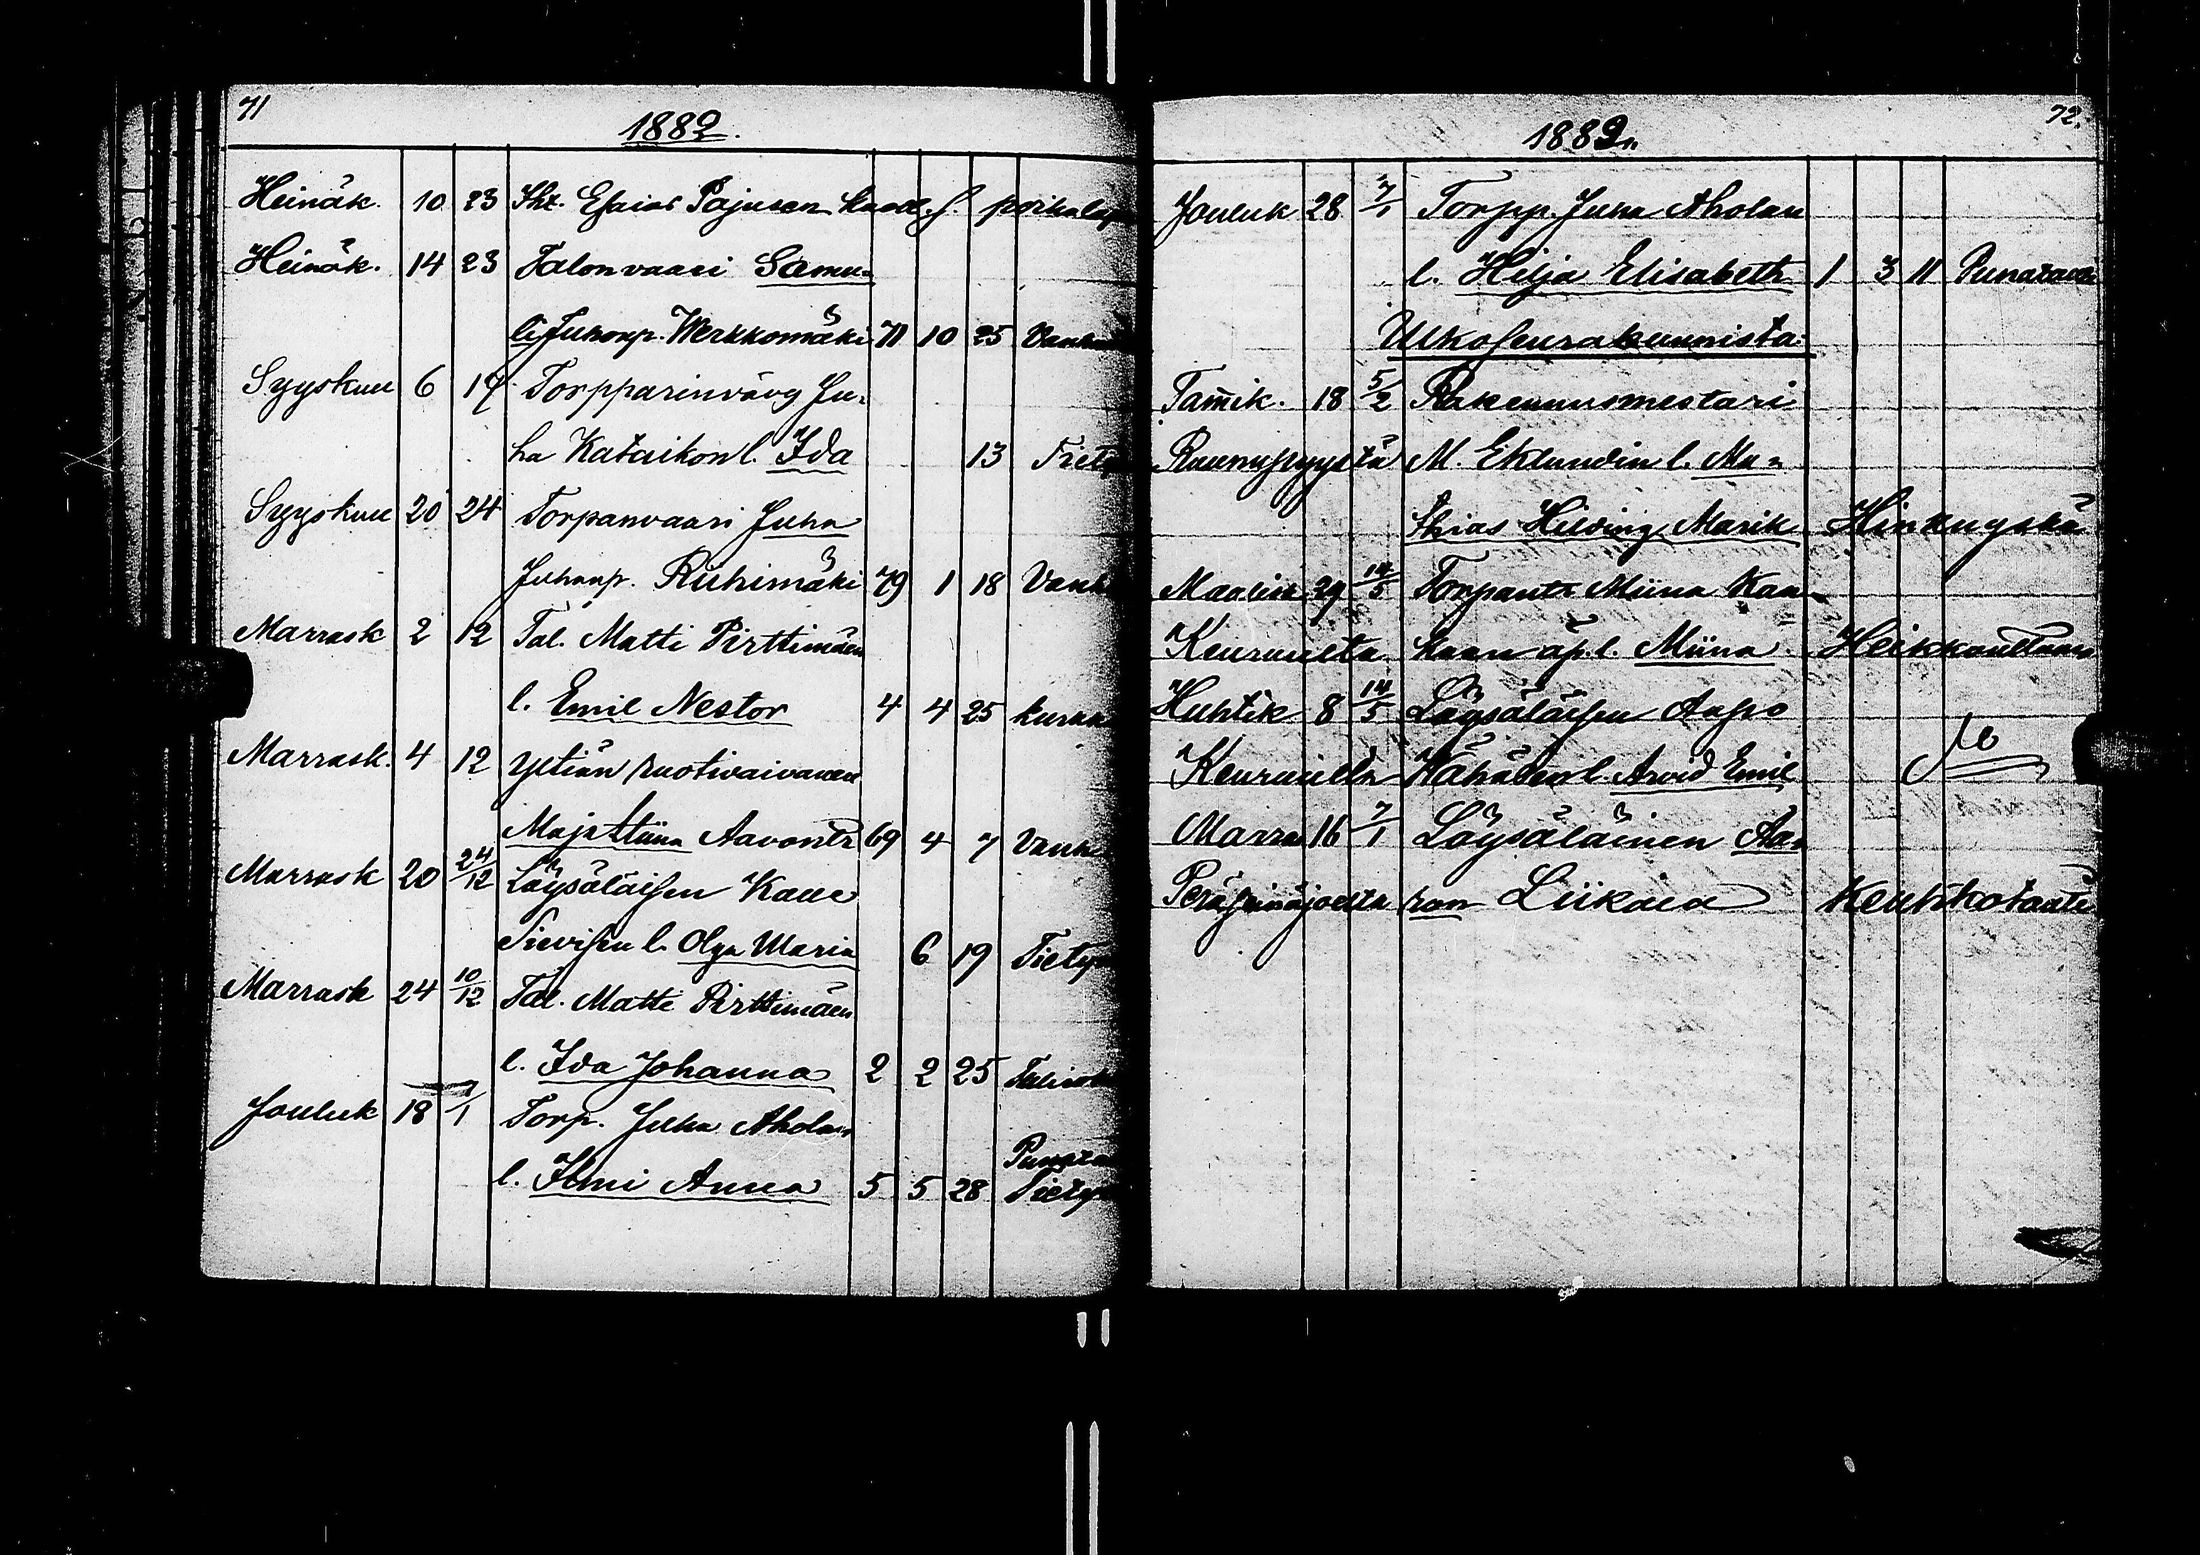 71
1882.
Heinäk. 10 23 Esaias Pajusen poikalap
Heinäk. 14 23 Talonvaari Samu-
li Juhonp. Werkkomäki 71 10 25 Vanh
Syyskuu 6 17 Torpparinvävy Ju-
ha Kataikon l. Ida 13 Tiety
Syyskuu 20 24 Torpanvaari Juha
Juhonp. Riihimäki 79 1 18 Vanh
Marrask 2 12 Tal. Matti Pirttimäen
l. Emil Nestor 4 4 25 kurkk
Marrask. 4 12 ruotivaivanen
Majastiina Aavontr 69 4 7 Vanh
Marrask 20 24/12 Löysäläisen Kalle
Sievisen l. Olga Maria 6 19 Tiety
Marrask 24 10/12 Tal. Matti Pirttimäen
l. Ida Johanna 2 2 25
Jouluk 18 7/1 Torp. Juha Aholan
l. Ilmi Anna 5 5 28 Tiety
72.
1882.
Jouluk 28 7/1 Torpp. Juha Aholan
l. Hilja Elisabeth 1 3 11 Punatauti
Ulkoseurakunnista.
Tam̄ik. 18 5/2 Rakennusmestari
Ruunupyystä M. Eklundin l. Ma-
thias Hilding Marik Hinkuyskä
Maalisk 29 14/5 Torpantr Miina Kan-
Keuruulta kaan äp. l. Miina
Huhtik 8 14/5 Löysäläisen Aapo
Keuruulta Kähäsen l. Arvid Emil
Marras 16 7/1 Löysäläinen Aa-
Peräseinäjoelta ron Liikala Keuhkotauti